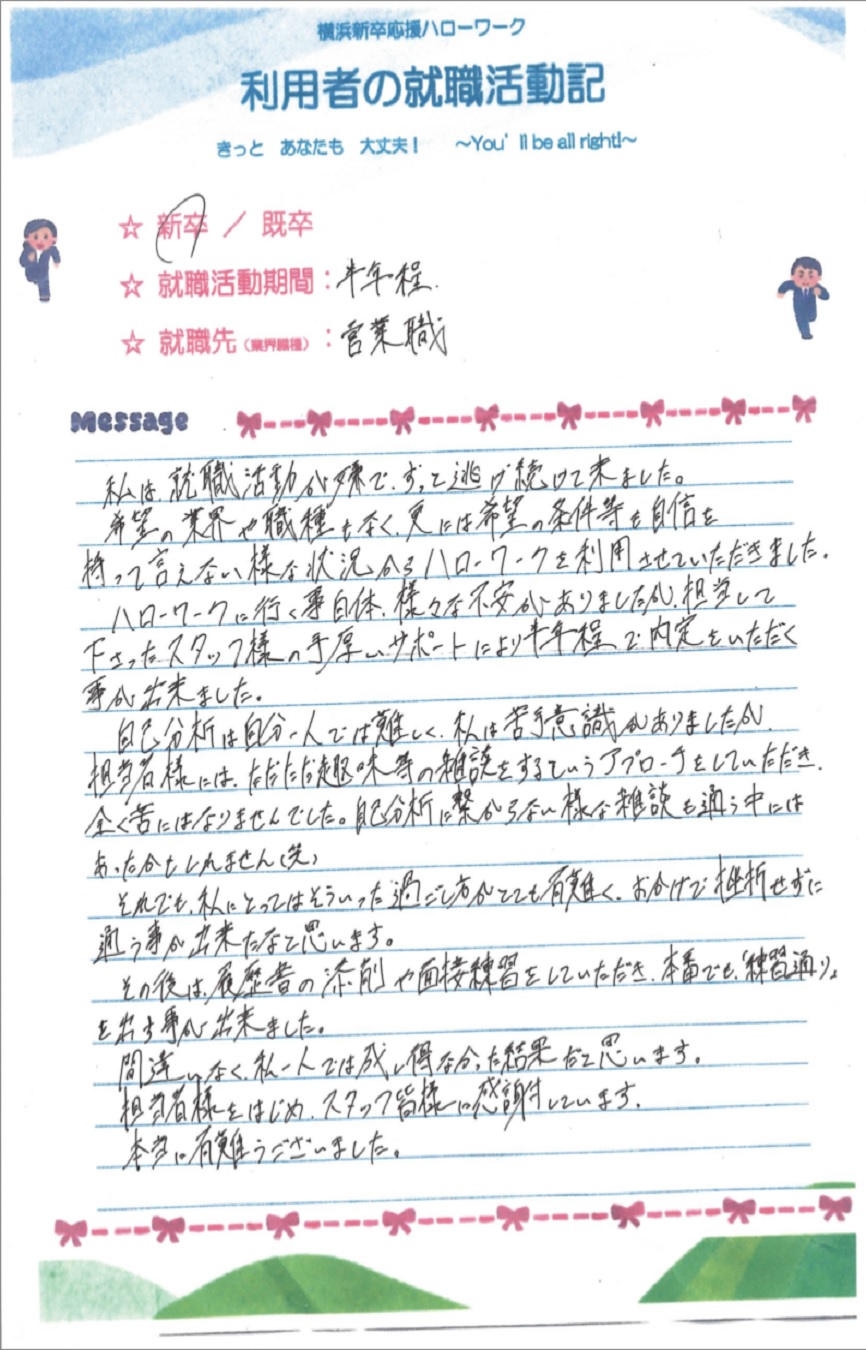 横浜新卒応援ハローワーク
利用者の就職活動記
きっと あなたも 大丈夫! ～You'll be all right!～
☆ 新卒 / 既卒
☆ 就職活動期間：半年程.
☆ 就職先（業界職種）：営業職
Message
私は、就職活動が嫌で、ずっと逃げ続けて来ました。
希望の業界や職種もなく、更には希望の条件等も自信を
持って言えない様な状況からハローワークを利用させていただきました。
ハローワークに行く事自体、様々な不安がありましたが、担当して
下さったスタッフ様の手厚いサポートにより半年程で内定をいただく
事が出来ました。
自己分析は自分一人では難しく、私は苦手意識がありましたが、
担当者様には、ただただ趣味等の雑談をするというアプローチをしていただき、
全く苦にはなりませんでした。自己分析に繋がらない様な雑談も通う中には
あったかもしれません(笑)
それでも、私にとってはそういった過ごし方がとても有難く、おかげで挫折せずに
通う事が出来たなと思います。
その後は、履歴書の添削や面接練習をしていただき、本番でも、「練習通り」
を出す事が出来ました。
間違いなく、私一人では成し得なかった結果だと思います。
担当者様をはじめ、スタッフ皆様に感謝しています。
本当に有難うございました。